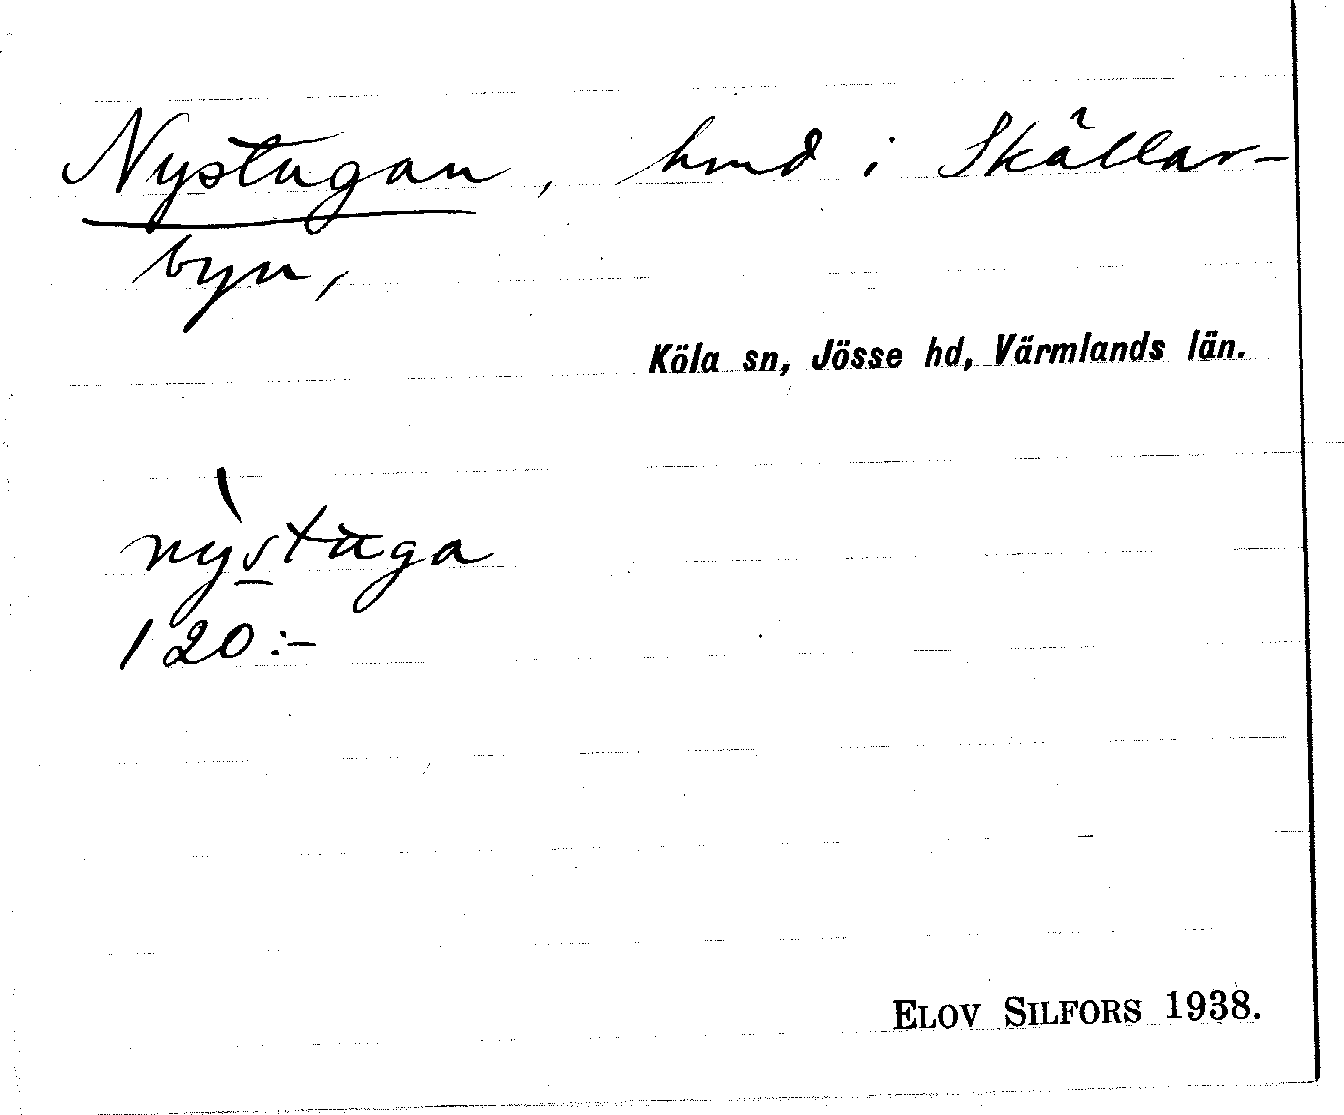 Nystugan, hmd i Skällar-
byn,
Köla sn, Jösse hd, Värmlands län.
nỳstuga
120:-
ELOV SILFORS 1938.